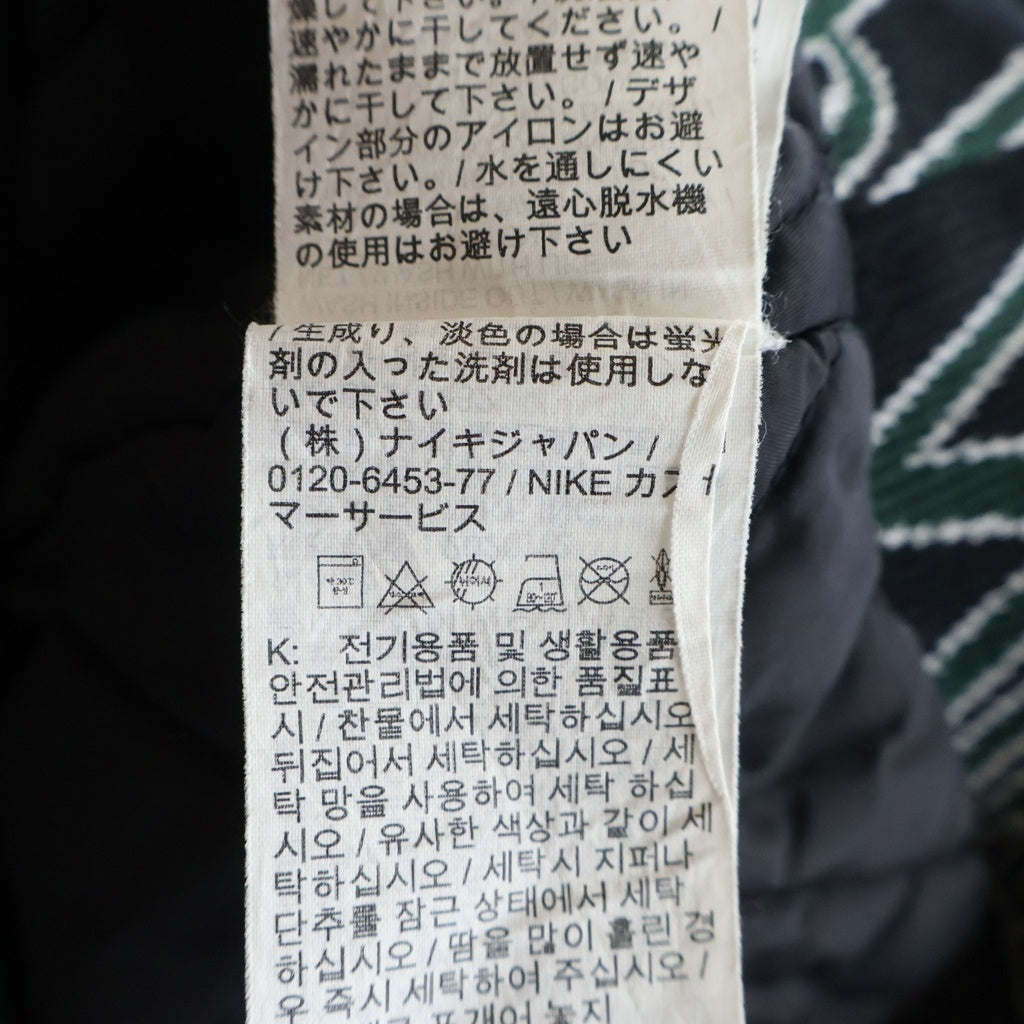 燥して下さい。
速やかに干してください。 /
濡れたままで放置せず速や
かに干して下さい。 / デザ
イン部分のアイロンはお避
け下さい。 / 水を通しにくい
素材の場合は、遠心脱水機
の使用はお避け下さい
/ 生成り、淡色の場合は蛍光
剤の入った洗剤は使用しな
いで下さい
( 株 ) ナイキジャパン /
0120-6453-77 / NIKE カスタ
マーサービス
K: 전기용품 및 생활용품
안전관리법에 의한 품질표
시 / 찬물에서 세탁하십시오
뒤집어서 세탁하십시오 / 세
탁 망을 사용하여 세탁 하십
시오 / 유사한 색상과 같이 세
탁하십시오 / 세탁시 지퍼나
단추를 잠근 상태에서 세탁
하십시오 / 땀을 많이 흘린 경
우 즉시 세탁하여 주십시오 /
펴개어 놓지